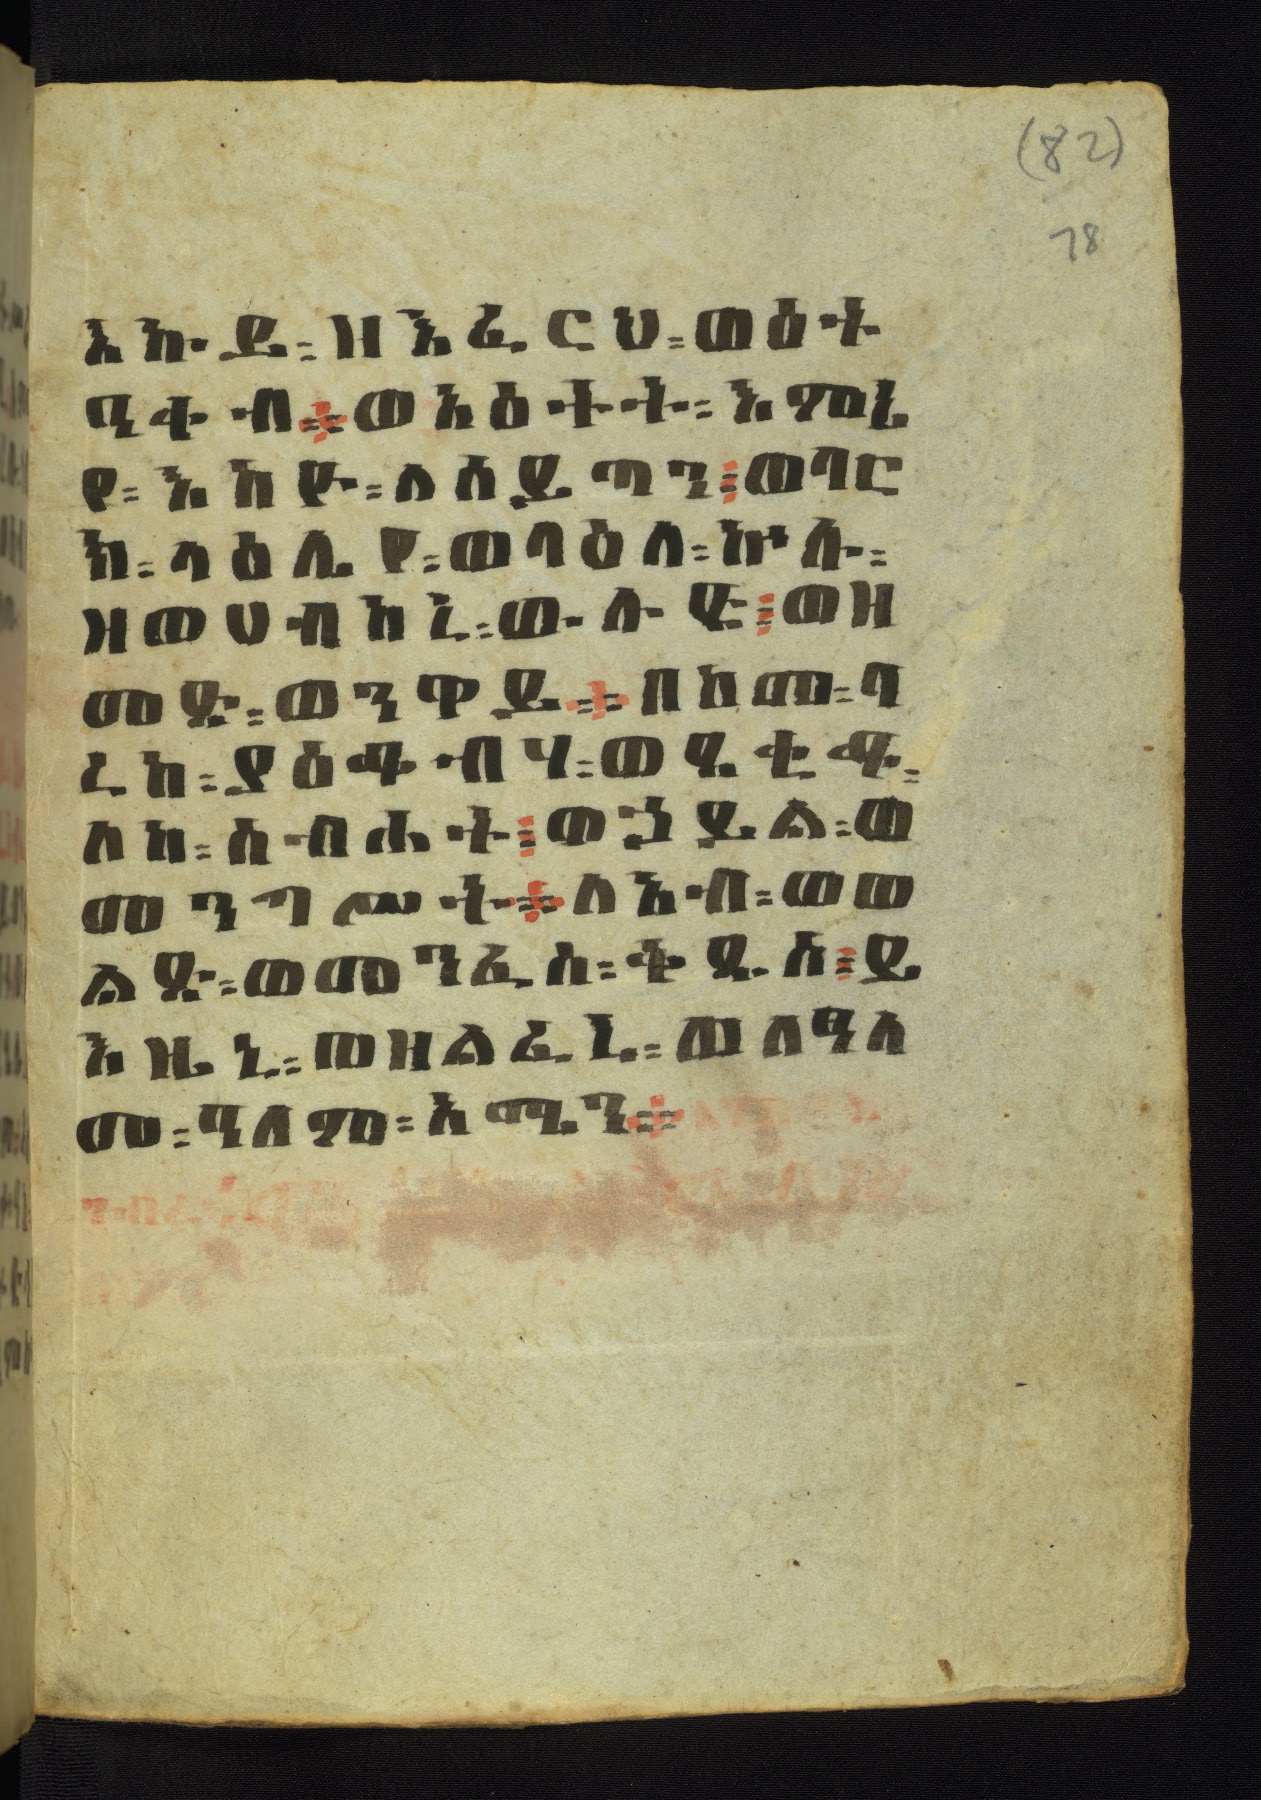 (82)
78
እኩይ፡ ዘእፈርህ፡ ወዕት
ዒቀብ፨ ወአዕትት፡ እምኔ
የ፡ እኪየ፡ ለሰይጣን፤ ወባር
ክ፡ ላዕሌየ፡ ወላዕለ፡ ኵሉ፡
ዘወሀብከኒ፡ ውሉድ፤ ወዘ
መድ፡ ወንዋይ፨ በከመ፡ ባ
ረከ፡ ያዕቆብሃ፡ ወፄቂቆ፡
ለከ፡ ስብሐት፤ ወኃይል፡ ወ
መንግሥት፨ ለአብ፡ ወወ
ልድ፡ ወመንፈስ፡ ቅዱስ፤ ይ
እዜኒ፡ ወዘልፈኒ፡ ወለዓለ
መ፡ ዓለም፡ አሜን፨